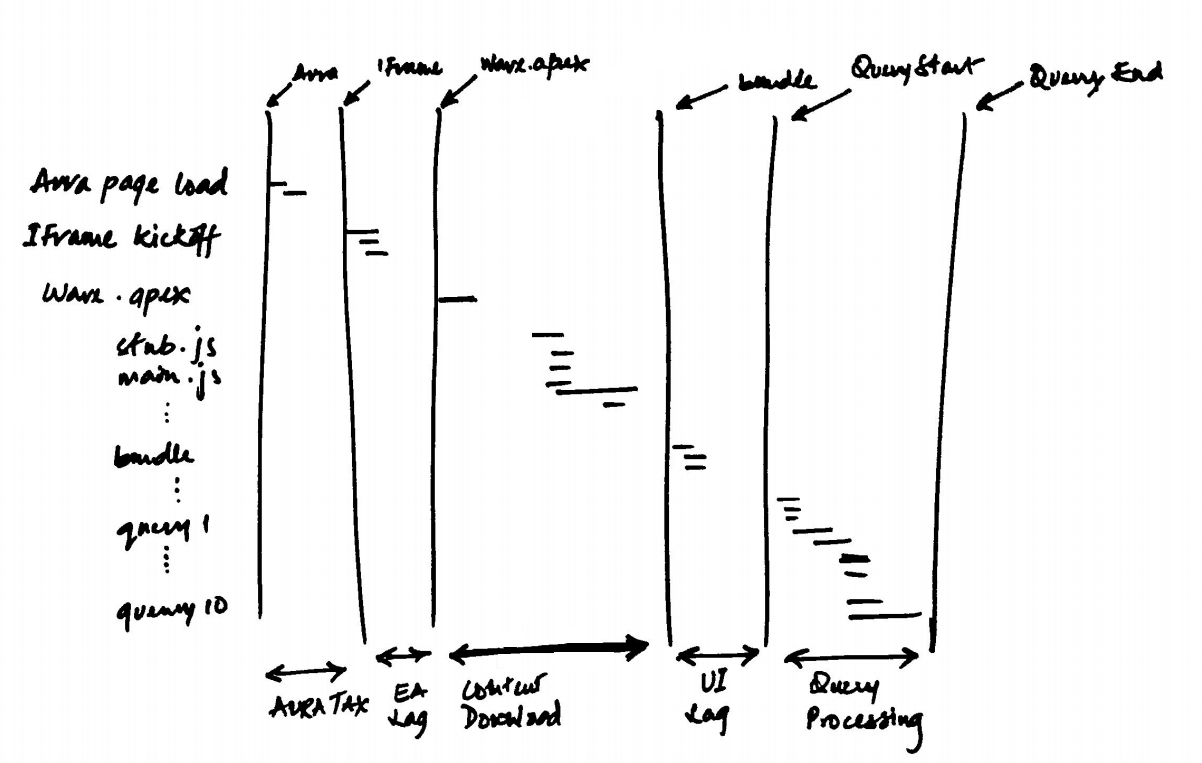 Aura
IFrame
Wave.apex
bundle
Query Start
Query End
Aura page load
IFrame kickoff
Wave.apex
stub.js
main.js
bundle
query 1
query 10
AURA TAX
EA
Lag
Content
Download
UI
Lag
Query
Processing